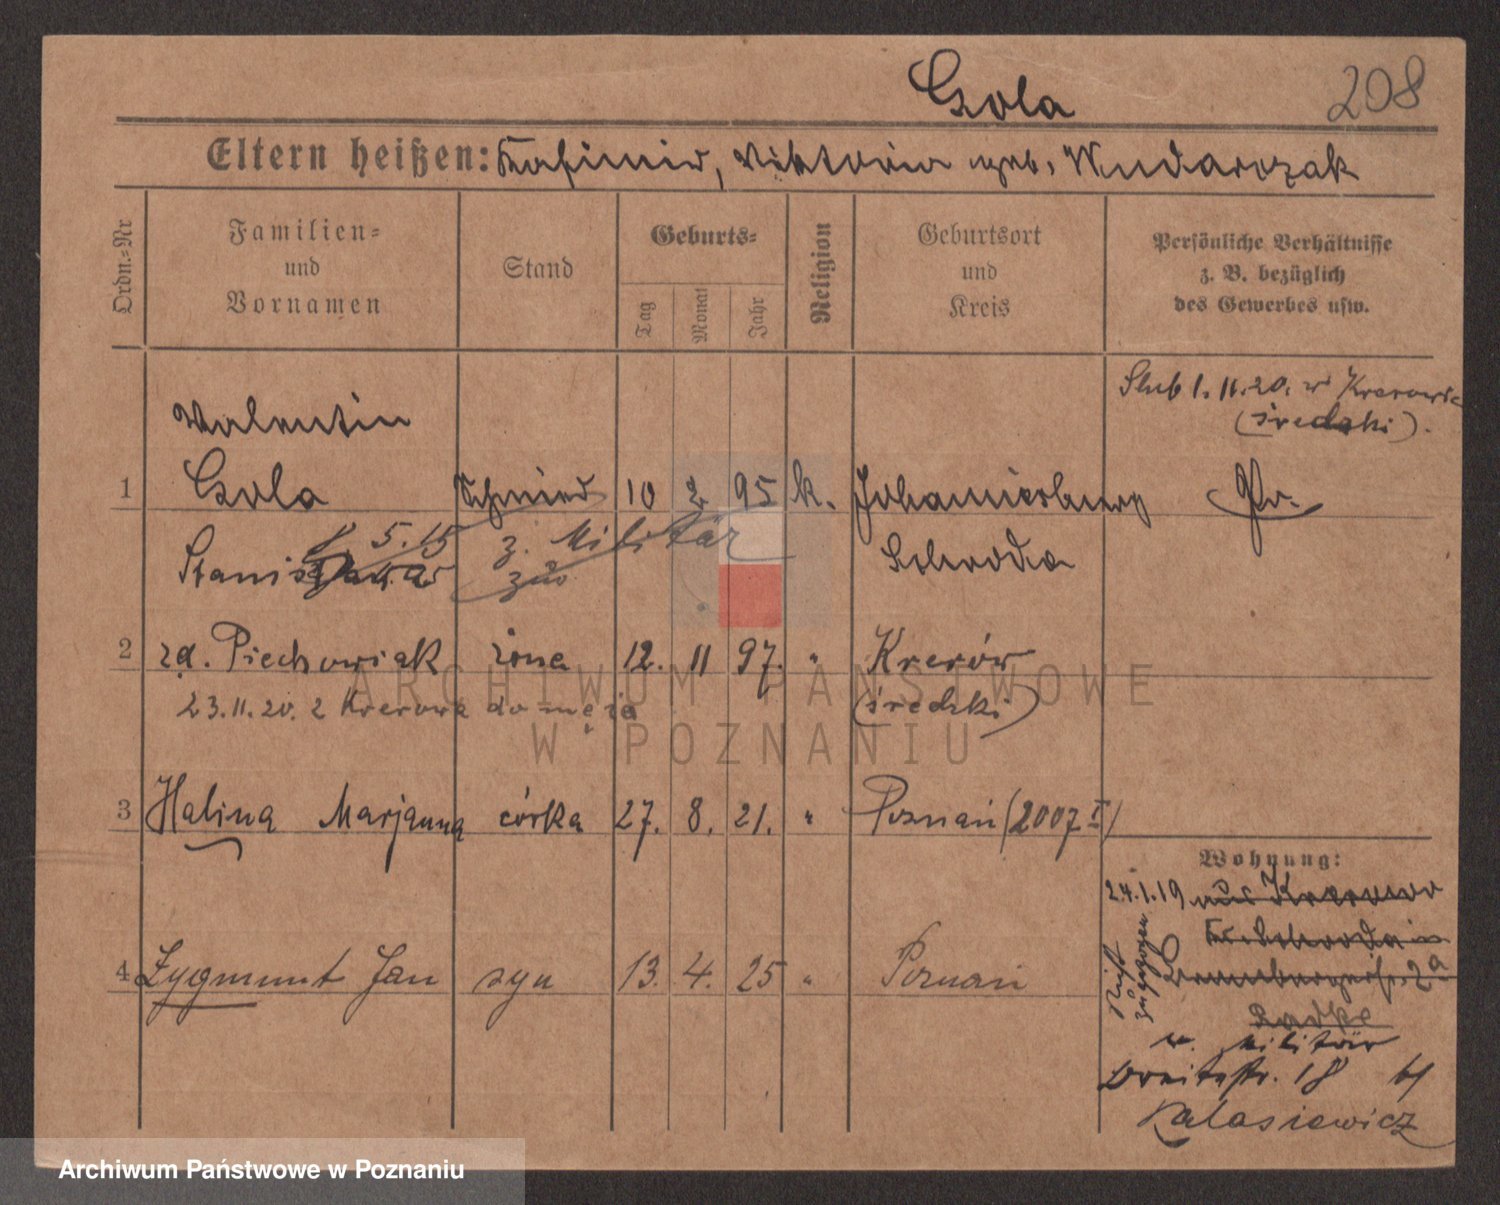 Gola
208
Eltern heißen: Kasimir, Viktoria geb. Wudarczak
Ordn.-Nr
Familien-
und
Vornamen
Stand
Geburts-
Tag
Monat
Jahr
Religion
Geburtsort
und
Kreis
Persönliche Verhältnisse
z. B. bezüglich
des Gewerbes usw.
Ślub 1.11.20. w Krerowie
(średzki).
Valentin
1 Gola Schmied 10 2 95 k. Johannesburg Pr.
5.15 z. Militär
Schroda
2 zd. Piechowiak żona 12. 11 97. " Krerów
23.11.20. z Krerowa do męża (średzki)
3 Halina Marjanna córka 27. 8. 21. " Poznań (2007 I)
Wohnung:
24.1.19 aus Krerowo
Kr. Schroda in
4 Zygmunt Jan syn 13. 4. 25 " Poznań
Nicht zugezogen
2a
Radke
w. Militär
Breitestr. 18 bei
Kalasiewicz
ARCHIWUM PAŃSTWOWE
W POZNANIU
Archiwum Państwowe w Poznaniu